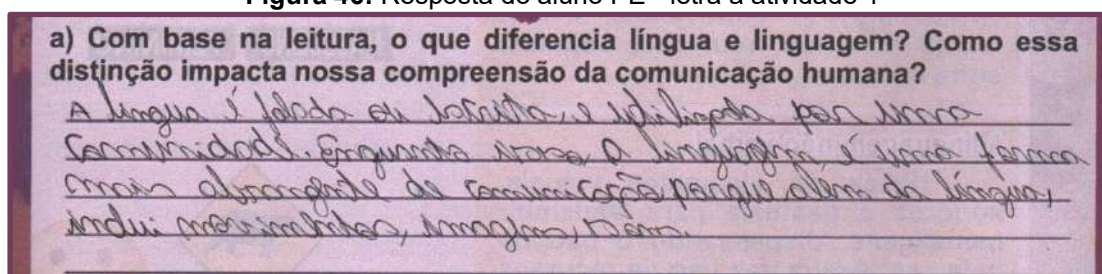 a) Com base na leitura, o que diferencia língua e linguagem? Como essa
distinção impacta nossa compreensão da comunicação humana?
A língua é falada ou escrita, e utilizada por uma
comunidade. Enquanto isso a linguagem é uma forma
mais abrangente de comunicação porque além da língua,
inclui movimentos, imagens, sons.